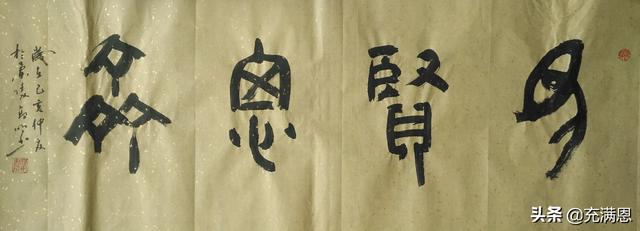 見賢思齊
歲在己亥仲夏
於
头条 @充满恩